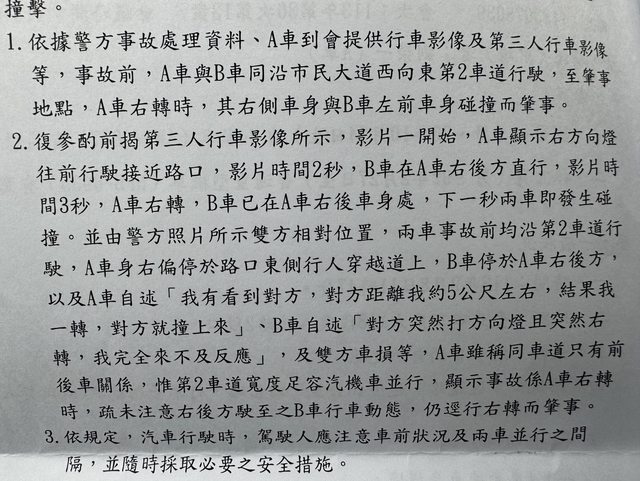 撞擊。
1.依據警方事故處理資料、A車到會提供行車影像及第三人行車影像
等，事故前，A車與B車同沿市民大道西向東第2車道行駛，至肇事
地點，A車右轉時，其右側車身與B車左前車身碰撞而肇事。
2.復參酌前揭第三人行車影像所示，影片一開始，A車顯示右方向燈
往前行駛接近路口，影片時間2秒，B車在A車右後方直行，影片時
間3秒，A車右轉，B車已在A車右後車身處，下一秒兩車即發生碰
撞。並由警方照片所示雙方相對位置，兩車事故前均沿第2車道行
駛，A車身右偏停於路口東側行人穿越道上，B車停於A車右後方，
以及A車自述「我有看到對方，對方距離我約5公尺左右，結果我
一轉，對方就撞上來」、B車自述「對方突然打方向燈且突然右
轉，我完全來不及反應」，及雙方車損等，A車雖稱同車道只有前
後車關係，惟第2車道寬度足容汽機車並行，顯示事故係A車右轉
時，疏未注意右後方駛至之B車行車動態，仍逕行右轉而肇事。
3.依規定，汽車行駛時，駕駛人應注意車前狀況及兩車並行之間
隔，並隨時採取必要之安全措施。